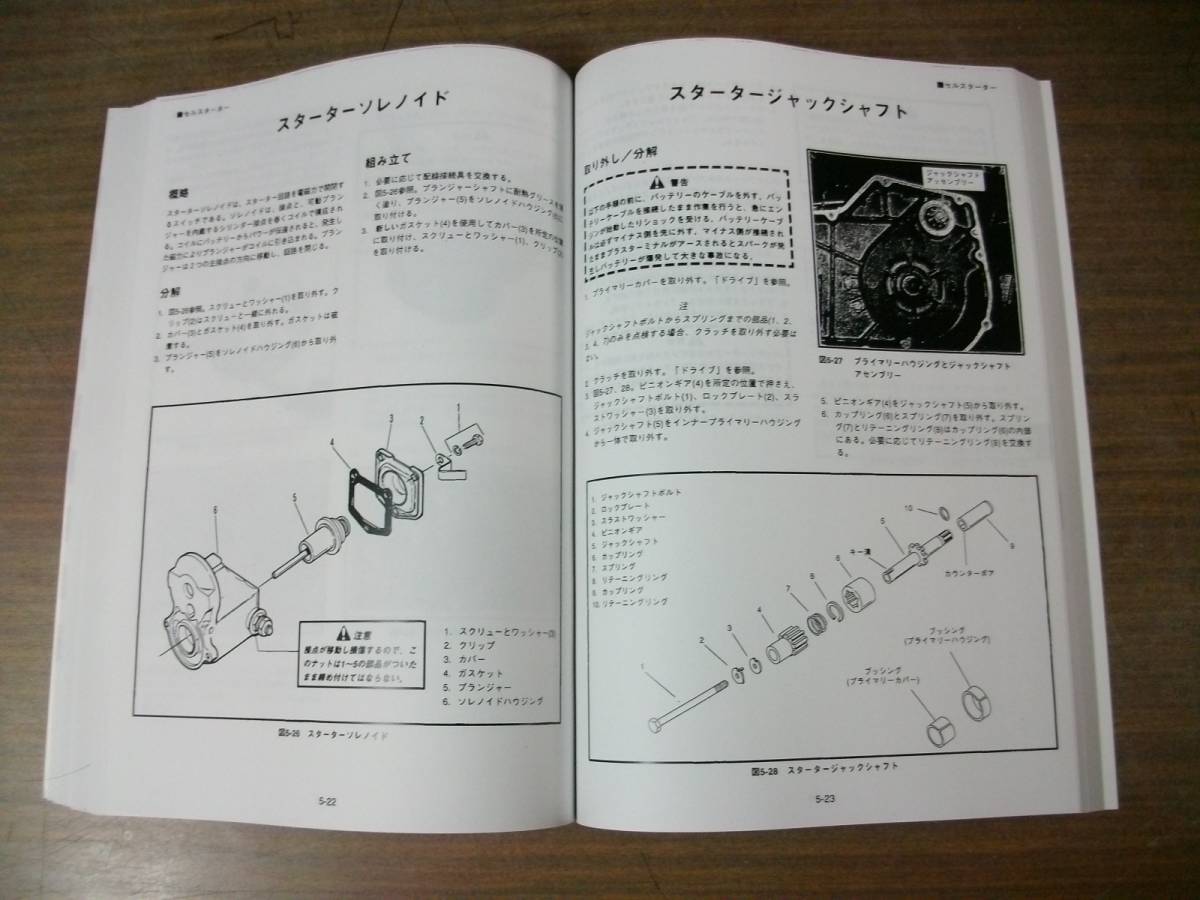 ■セルスターター
スターターソレノイド
概略
スターターソレノイドは、スターター回路を電磁力で開閉す
るスイッチである。ソレノイドは、接点と、可動プラン
ジャーを内蔵するシリンダー接点を巻くコイルで構成され
る。コイルにバッテリーからパワーが伝達されると、発生し
た磁力によりプランジャーがコイルに引き込まれる。プラン
ジャーは2つの主接点の方向に移動し、回路を閉じる。
分解
1. 図5-26参照。スクリューとワッシャー(1)を取り外す。ク
リップ(2)はスクリューと一緒に外れる。
2. カバー(3)とガスケット(4)を取り外す。ガスケットは破
棄する。
3. プランジャー(5)をソレノイドハウジング(6)から取り外
す。
組み立て
1. 必要に応じて配線接続具を交換する。
2. 図5-26参照。プランジャーシャフトに耐熱グリースを
く塗り、プランジャー(5)をソレノイドハウジング(6)に
取り付ける。
3. 新しいガスケット(4)を使用してカバー(3)を所定の位置
に取り付け、スクリューとワッシャー(1)、クリップ(2)
を取り付ける。
1
2
3
4
5
6
注意
接点が移動し損傷するので、こ
のナットは1〜5の部品がついた
まま締め付けてはならない。
1. スクリューとワッシャー(3)
2. クリップ
3. カバー
4. ガスケット
5. プランジャー
6. ソレノイドハウジング
図5-26 スターターソレノイド
5-22
■セルスターター
スタータージャックシャフト
取り外し/分解
警告
以下の手順の前に、バッテリーのケーブルを外す。バッ
テリーケーブルを接続したまま作業を行うと、急にエン
ジンが始動したりショックを受ける。バッテリーケーブ
ルは必ずマイナス側を先に外す。マイナス側が接続され
たままプラスターミナルがアースされるとスパークが発
生しバッテリーが爆発して大きな事故になる。
1. プライマリーカバーを取り外す。「ドライブ」を参照。
注
ジャックシャフトボルトからスプリングまでの部品(1、2、
3、4、7)のみを点検する場合、クラッチを取り外す必要は
ない。
2. クラッチを取り外す。「ドライブ」を参照。
3. 図5-27、28。ピニオンギア(4)を所定の位置で押さえ、
ジャックシャフトボルト(1)、ロックプレート(2)、スラ
ストワッシャー(3)を取り外す。
4. ジャックシャフト(5)をインナープライマリーハウジング
から一体で取り外す。
ジャックシャフト
アッセンブリー
図5-27 プライマリーハウジングとジャックシャフト
アセンブリー
5. ピニオンギア(4)をジャックシャフト(5)から取り外す。
6. カップリング(6)とスプリング(7)を取り外す。スプリン
グ(7)とリテーニングリング(8)はカップリング(6)の内側
にある。必要に応じてリテーニングリング(8)を交換す
る。
1. ジャックシャフトボルト
2. ロックプレート
3. スラストワッシャー
4. ピニオンギア
5. ジャックシャフト
6. カップリング
7. スプリング
8. リテーニングリング
9. カップリング
10. リテーニングリング
10
5
9
キー溝
カウンターボア
6
8
7
4
3
2
1
ブッシング
(プライマリーハウジング)
ブッシング
(プライマリーカバー)
図5-28 スタータージャックシャフト
5-23